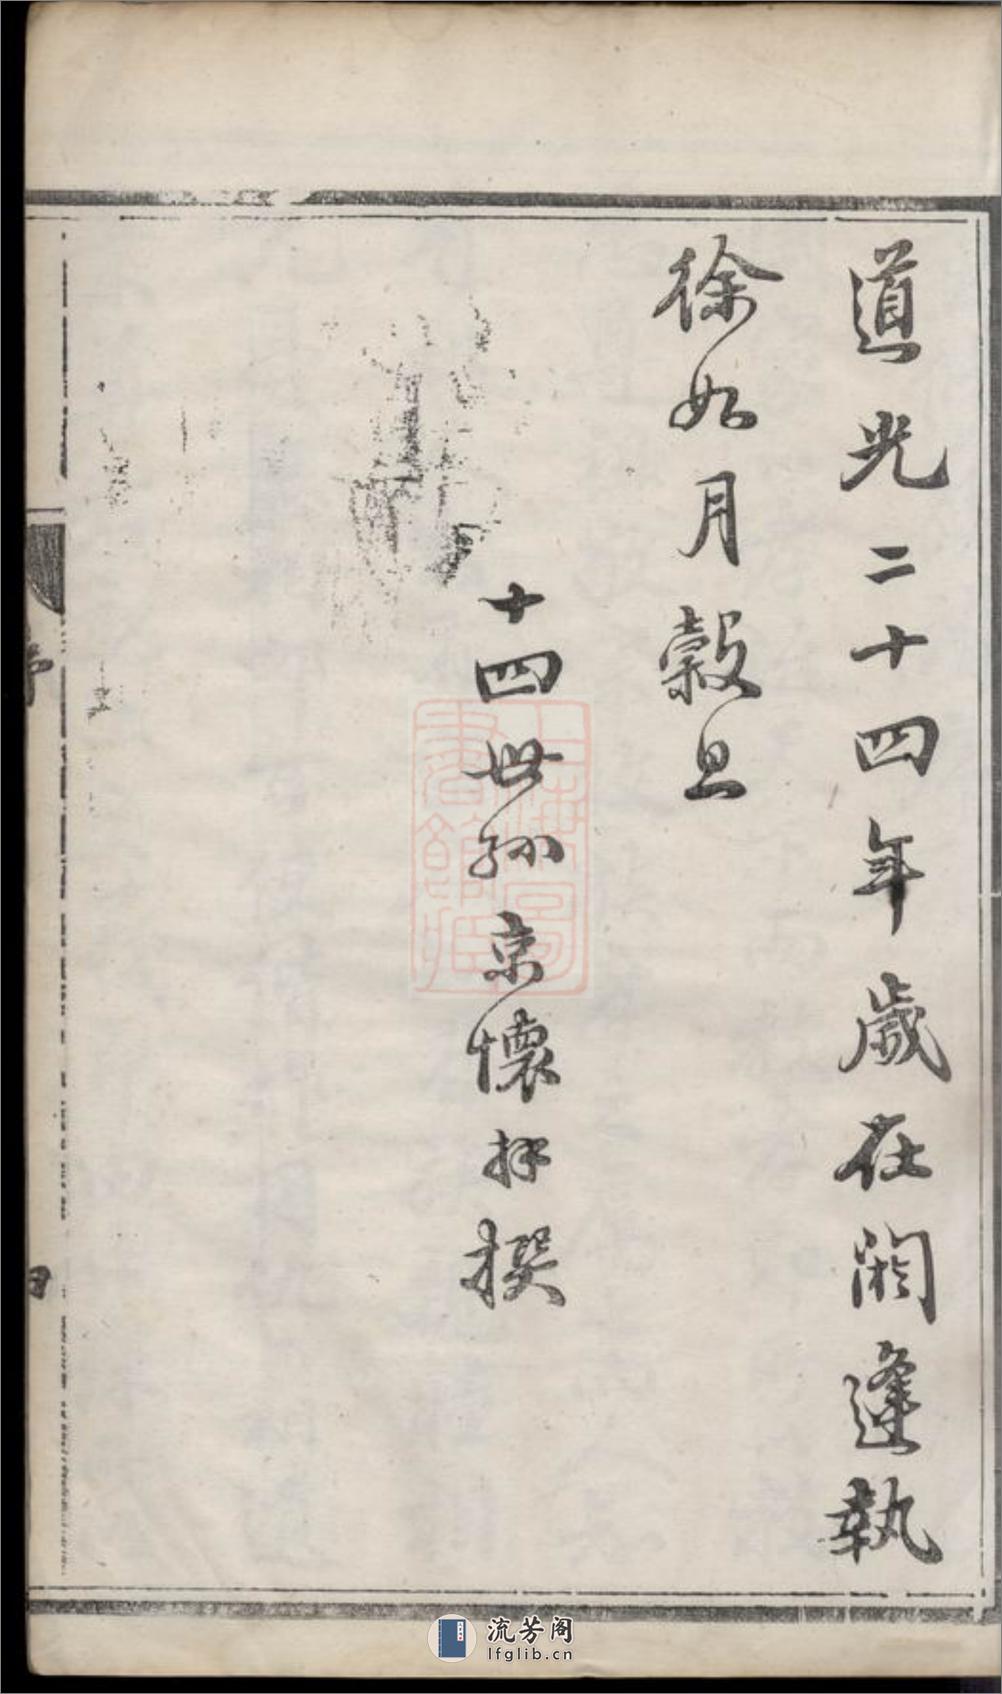 道光二十四年歲在閼逢執
徐如月穀旦
十四世孫京懷拜撰
序
四
上海圖書館藏
流芳阁
lfglib.cn